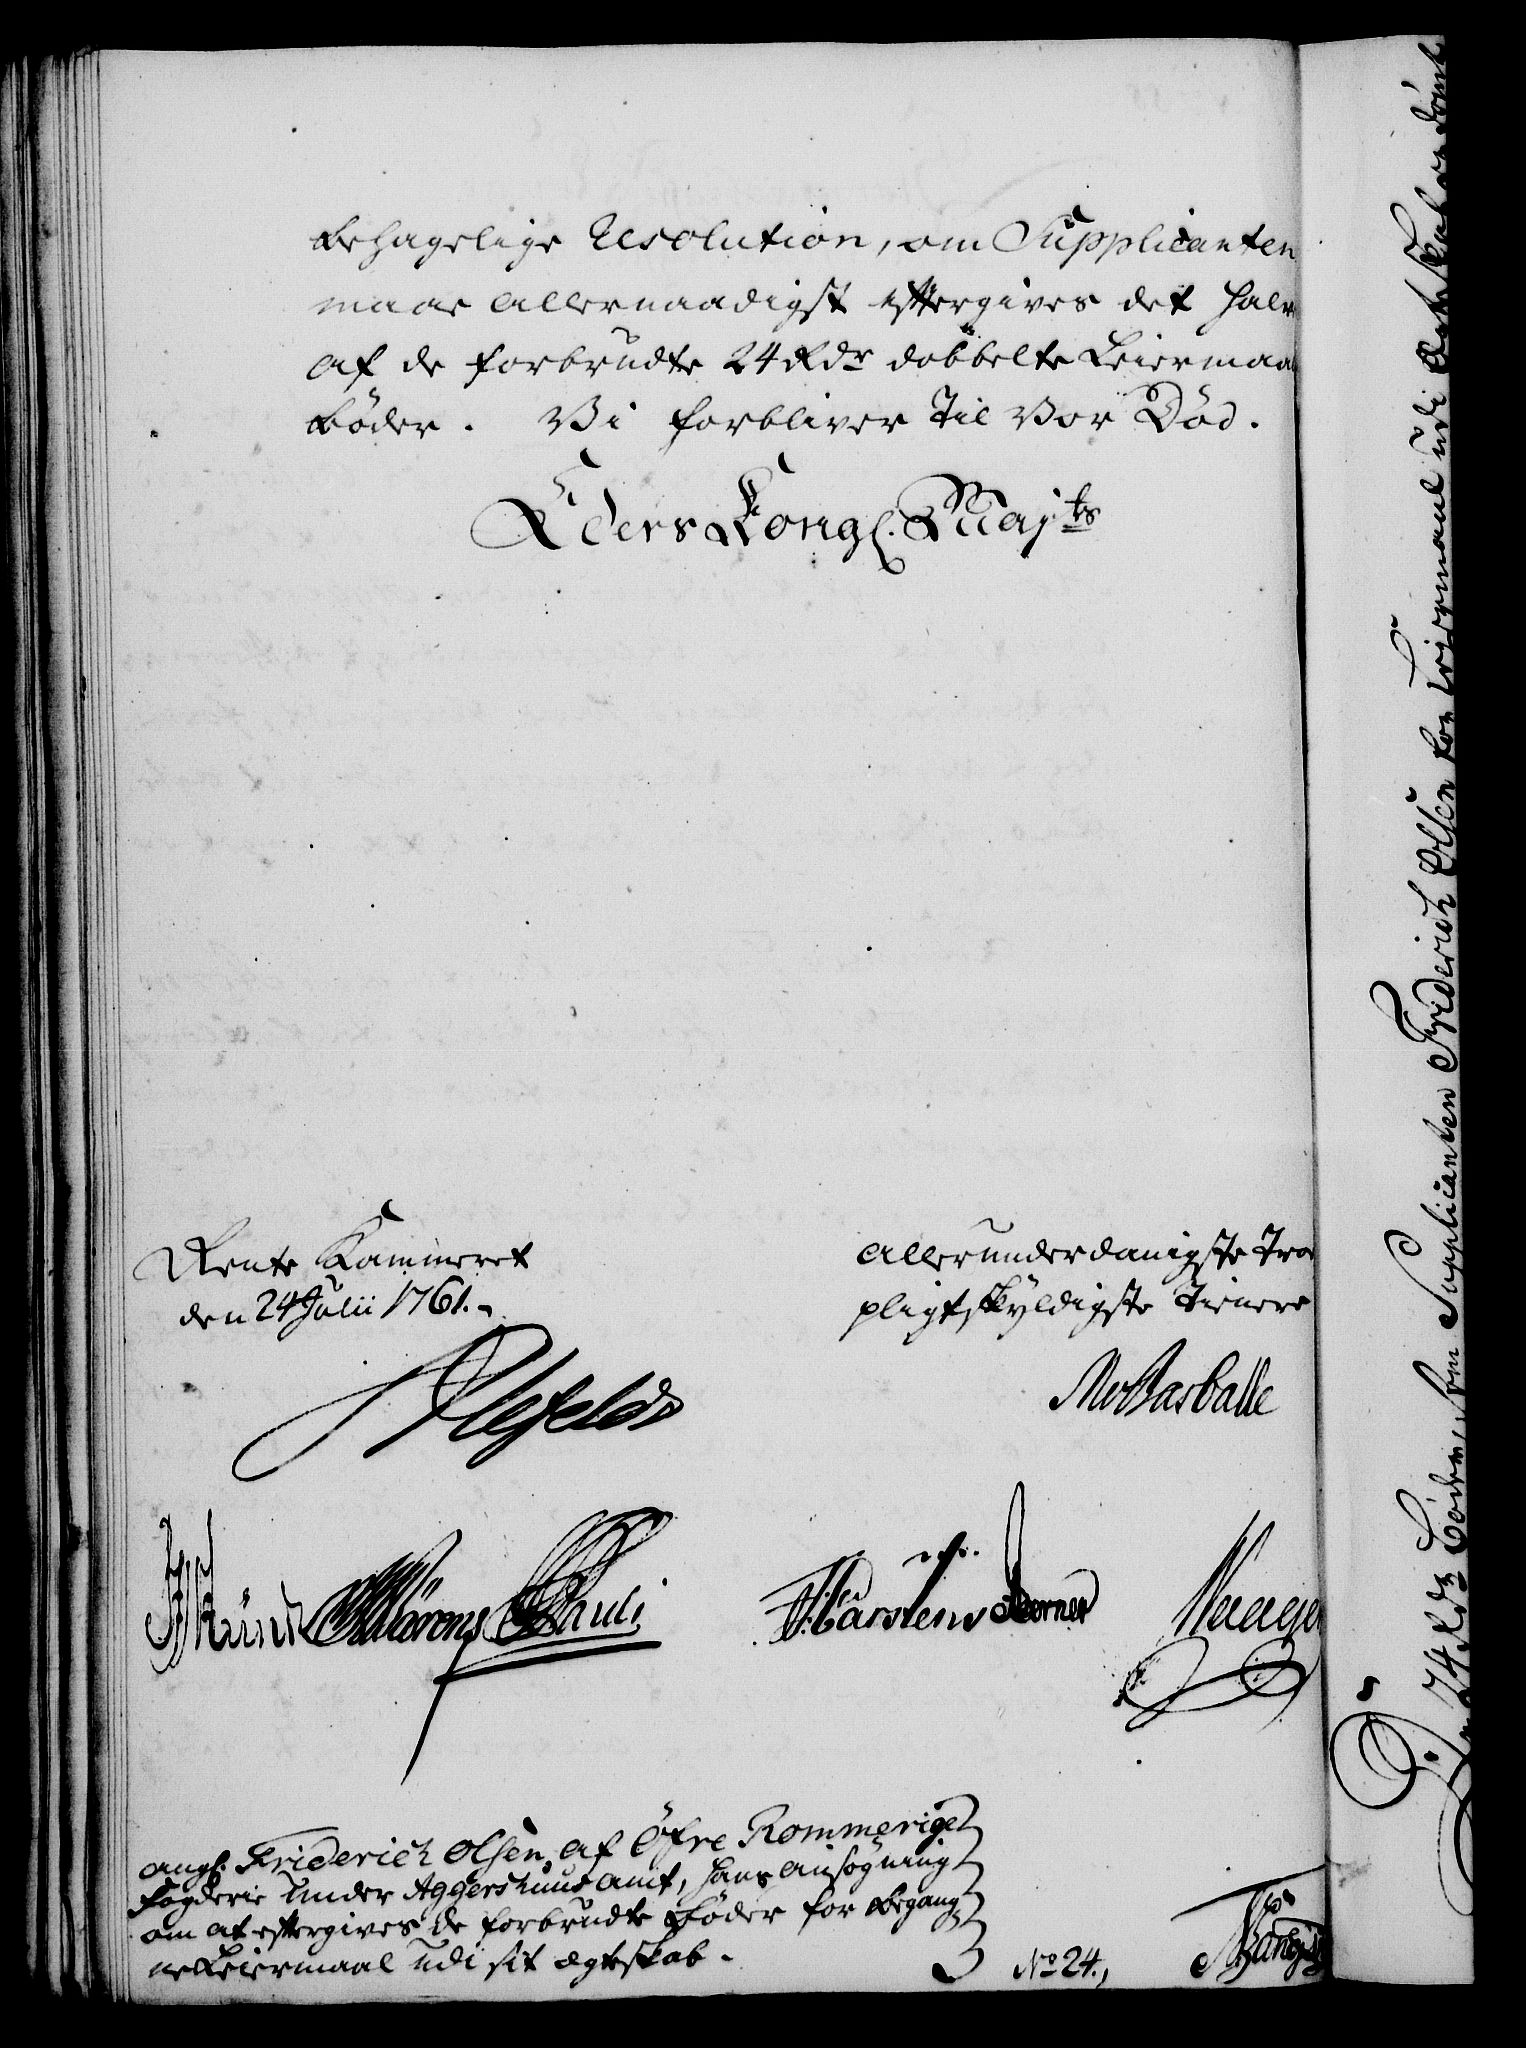 behagelige Resolution, om Supplicanten
maae allernaadigst eftergives det halv
af de forbrudte 24 Rdr dobbelte Leiermaa
bøder. Vi forbliver til vor Død.
Eders Kongl. Majts
Rente Kammeret
den 24 Julii 1761.
Allerunderdanigste Troe
pligtskÿldigste Tienere
Alefeldt
Carstens
Pauli
angl. Friderich Olsen af Öfre Rommerige
Fogderie under Aggershuus amt, hans ansøgning
om at eftergives de forbrudte Bøder for begang
ne Leiermaal udi sit ægteskab.
No 24.
24 Rdr Bøder, som Supplicanten Friderich Olsen for Leiermaal udi Ægteskab er dømt